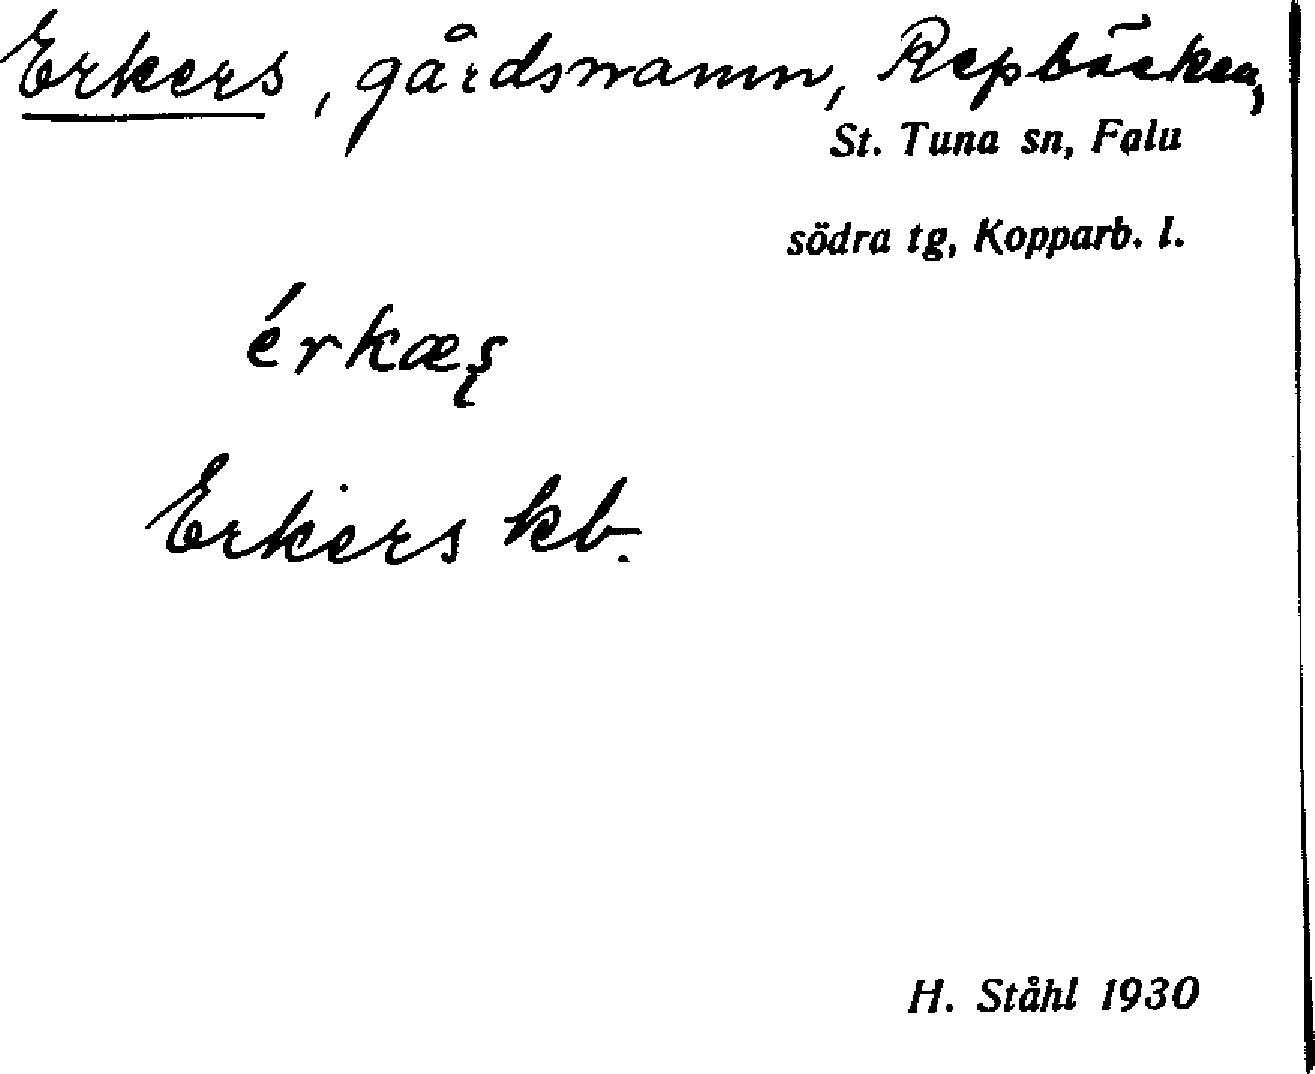 Erkers, gårdsnamn, Repbäcken,
St. Tuna sn, Falu
södra tg, Kopparb. l.
érkæş
Erkers kb.
H. Ståhl 1930